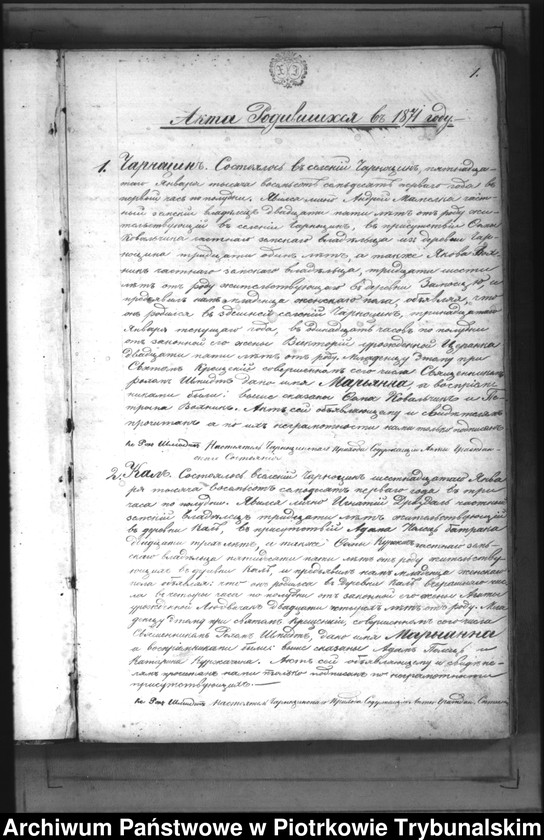 1.
Акты Родившихся въ 1871 году.
1. Чарноцинъ. Состоялось въ селеніи Чарноцинъ, пятнадца-
таго Января тысяча восемьсотъ семьдесятъ перваго года въ
первой часъ по полудни. Явился лично Андрей
ный земскій владѣлецъ двадцати пяти лѣтъ отъ роду жи-
тельствующій въ селеніи Чарноцинъ, въ присутствіи Сапа
Ковальчика частнаго земскаго владѣльца изъ деревни Чар-
ноцина тридцати лѣтъ, а также Якова Воз-
няк частнаго земскаго владѣльца, тридцати шести
лѣтъ отъ роду жительствующаго въ деревни и
предъявилъ намъ младенца женскаго пола, объявляя, что
онъ родился въ здешнемъ селеніи Чарноцинъ, тринадцатаго
Января текущаго года, въ одинадцать часовъ по полудни
отъ законной его жены Викторіи урожденной
двадцати пяти лѣтъ отъ роду. Младенцу этому при
Святомъ Крещеніи совершенномъ сего числа Священникомъ
Шмидтъ дано имя Марьянна, а воспріем-
никами были: выше сказаны Сапа Ковальчикъ и Пе-
трона Возникъ. Актъ сей объявляющему и свидѣтелямъ
прочитанъ а по ихъ неграмотности нами только подписанъ
Кс Ром Шмидтъ Настоятель Чарноцинскаго Прихода Содержащій Акты Гражданс-
каго Состоянія
2. Калъ. Состоялось въ селеніи Чарноцинъ шестнадцатаго Янва-
ря тысяча восемьсотъ семьдесятъ перваго года въ три
часа по полудни. Явился лично Игнатій частный
земскій владѣлецъ тридцати лѣтъ жительствующій
въ деревни Калъ, въ присутствіи Адама батрака
двадцати трехъ лѣтъ и также: Сапы частнаго земс-
каго владѣльца пятидесяти пяти лѣтъ отъ роду жительству-
ющихъ въ деревни Калъ, и предъявилъ намъ младенца женскаго
пола объявляя: что онъ родился въ деревни Калъ вчерашняго чис-
ла въ четыре часа по полудни отъ законной его жены
урожденной двадцати четырехъ лѣтъ отъ роду. Мла-
денцу этому при святомъ крещеніи, совершенномъ сего числа
Священникомъ Шмидтъ, дано имя Марьянна
а воспріемниками были: выше сказаны Адамъ и
Катарина. Актъ сей объявляющему и свидѣте-
лямъ прочитанъ нами только подписанъ по неграмотности
присутствующихъ.
Кс Ром Шмидтъ Настоятель Чарноцинскаго Прихода Содержащій Акты Граждан. Состоян.
Archiwum Państwowe w Piotrkowie Trybunalskim